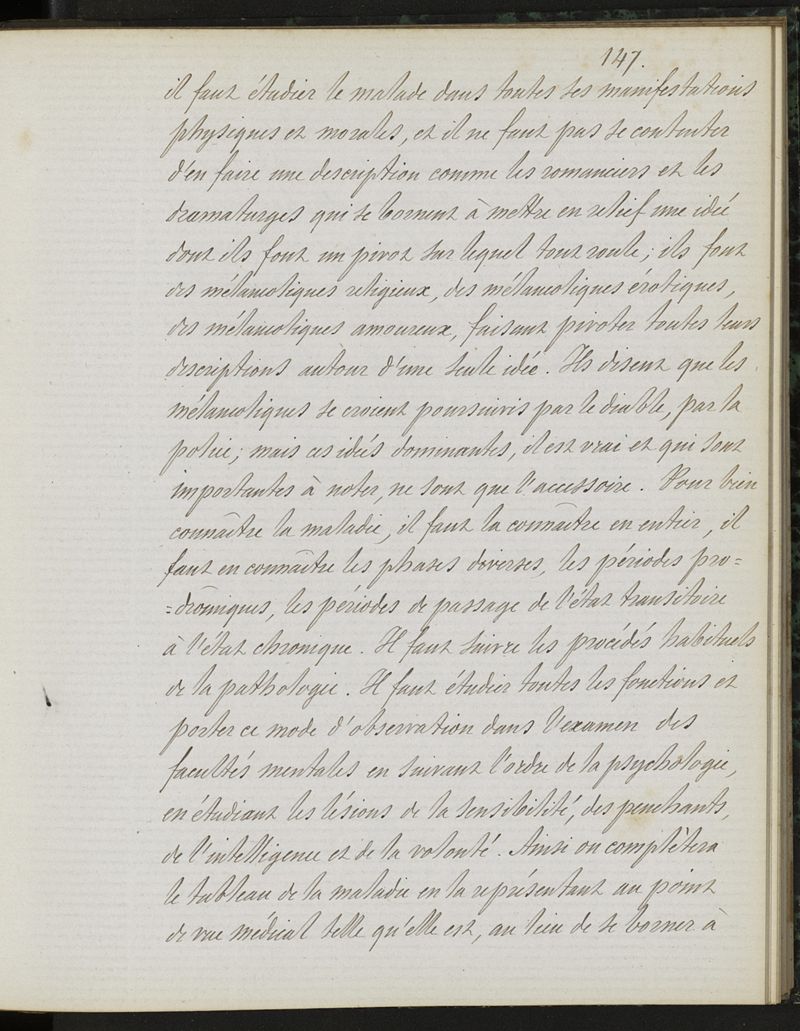 147.
il faut étudier le malade dans toutes ses manifestations
physiques et morales, et il ne faut pas se contenter
d'en faire une description comme les romanciers et les
dramaturges qui se bornent à mettre en relief une idée
dont ils font un pivot sur lequel tout roule ; ils font
des mélancoliques religieux, des mélancoliques érotiques,
des mélancoliques amoureux, faisant pivoter toutes leurs
descriptions autour d'une seule idée. Ils disent que les
mélancoliques se croient poursuivis par le diable, par la
police ; mais ces idées dominantes, il est vrai et qui sont
importantes à noter, ne sont que l'accessoire. Pour bien
connaître la maladie, il faut la connaître en entier, il
faut en connaître les phases diverses, les périodes pro=
=drômiques, les périodes de passage de l'état transitoire
à l'état chronique. Il faut suivre les procédés habituels
de la pathologie. Il faut étudier toutes les fonctions et
porter ce mode d'observation dans l'examen des
facultés mentales en suivant l'ordre de la psychologie,
en étudiant les lésions de la sensibilité, des penchants,
de l'intelligence et de la volonté. Ainsi on complètera
le tableau de la maladie en la représentant au point
de vue médical telle qu'elle est, au lieu de se borner à